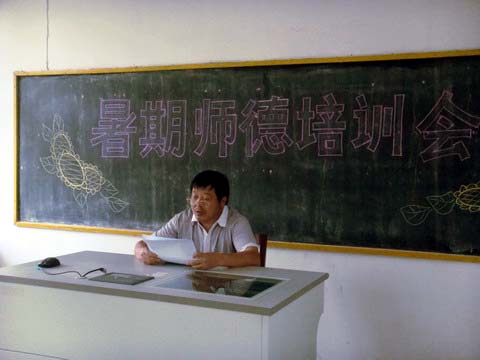 暑期师德培训会